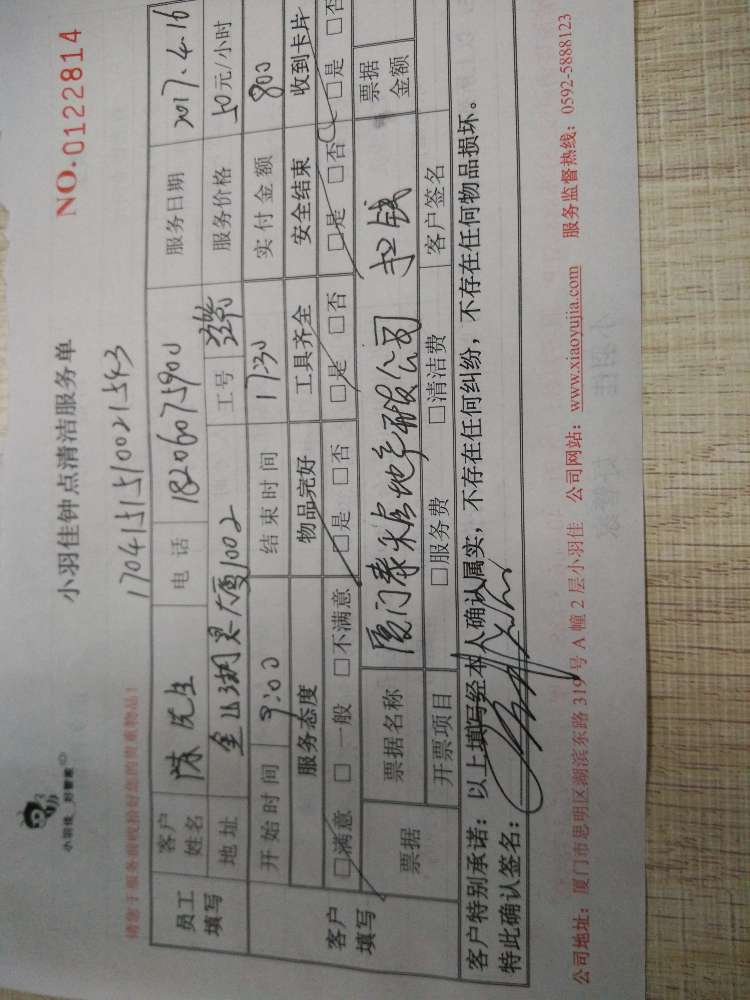 小羽佳 好管家
小羽佳钟点清洁服务单
NO.0122814
请您于服务前收拾好您的贵重物品！
1704151510021543
员工填写
客户姓名 陈先生 电话 18206075900 服务日期 2017.4.16
地址 金山湖景大厦1002 工号 服务价格 50元/小时
开始时间 9:00 结束时间 17:30 实付金额 800
客户填写
服务态度 物品完好 工具齐全 安全结束 收到卡片
□满意 □一般 □不满意 □是 □否 □是 □否 □是 □否 □是 □否
票据 票据名称 厦门 地产 有限公司 票据金额
开票项目 □服务费 □清洁费 客户签名
客户特别承诺：以上填写经本人确认属实，不存在任何纠纷，不存在任何物品损坏。
特此确认签名：
公司地址：厦门市思明区湖滨东路319号A幢2层小羽佳 公司网站：www.xiaoyujia.com 服务监督热线：0592-5888123